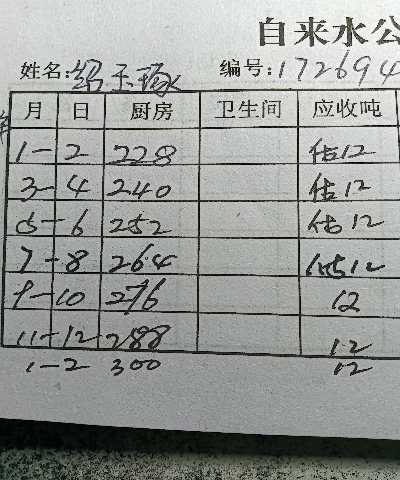 自来水公
姓名: 玉琢 编号:172694
月 日 厨房 卫生间 应收吨
1-2 228 估12
3-4 240 估12
5-6 252 估12
7-8 264 估12
9-10 276 12
11-12 288 12
1-2 300 12